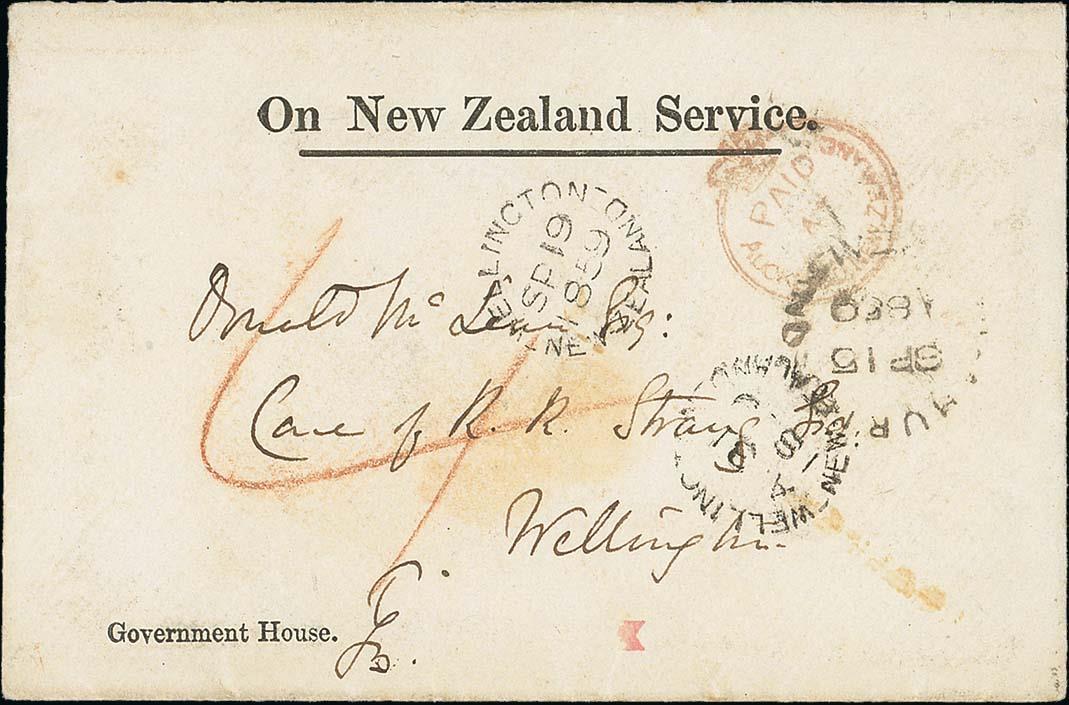 On New Zealand Service.
PAID
WELLINGTON NEW ZEALAND
SP 19
1859
Donald McLean Esq:
Care of R. R. Strang Esq.
Wellington.
SP 15
1859
NEW ZEALAND
WELLING
Government House.